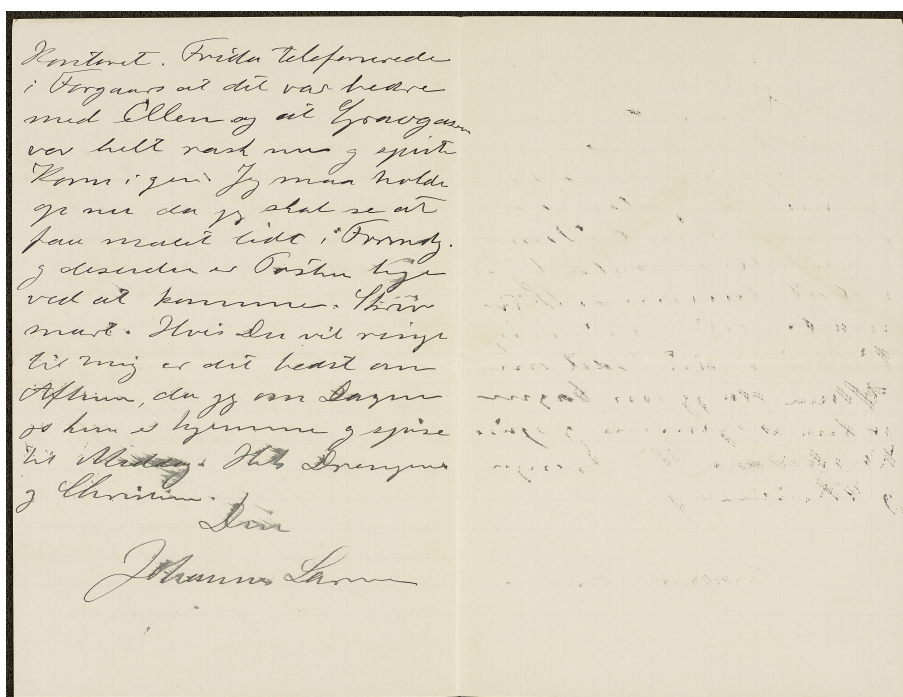 Kontoret. Frida telefonerede
i Forgaars at det var bedre
med Ellen og at Gravgasen
var helt rask nu og spiste
Korn igen. Jeg maa holde
op nu da jeg skal se at
faa malet lidt i Formdg.
og desuden er Posten lige
ved at komme. Skriv
snart. Hvis Du vil ringe
til mig er det bedst om
Aftnen, da jeg om Dagen
jo kun er hjemme og spise
til Middag. Hils Drengene
og Christine.
Din
Johannes Larsen